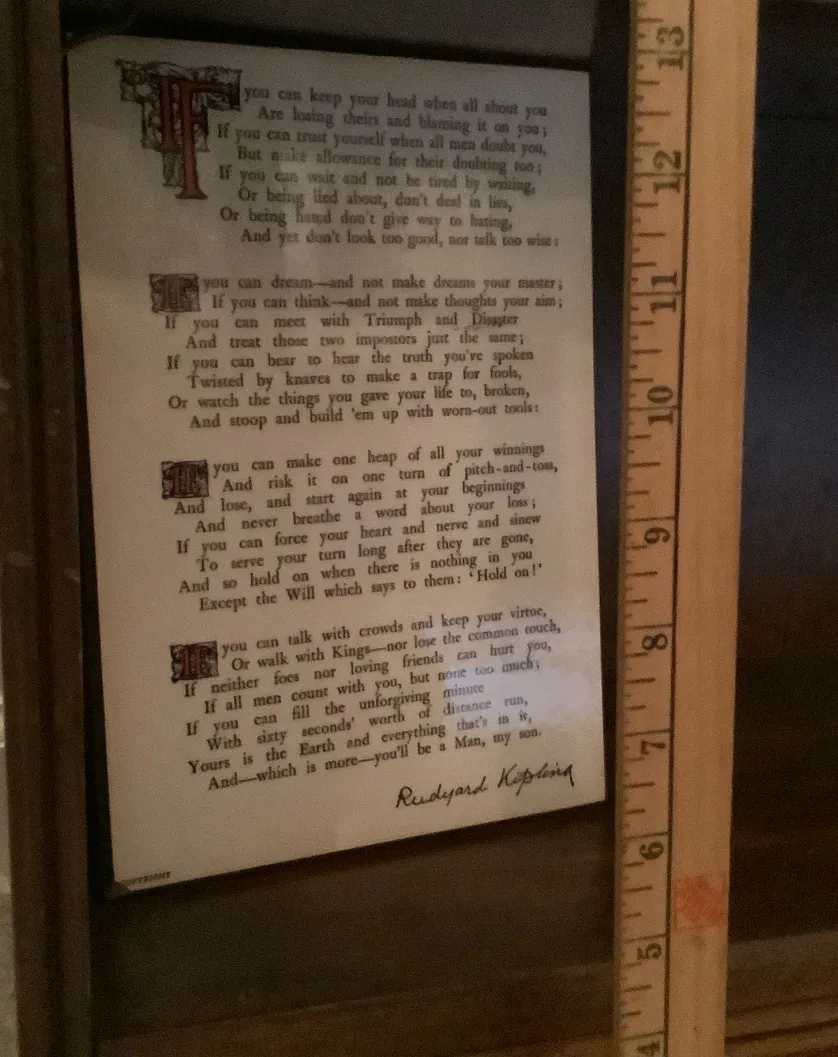 IF you can keep your head when all about you
Are losing theirs and blaming it on you;
If you can trust yourself when all men doubt you,
But make allowance for their doubting too;
If you can wait and not be tired by waiting,
Or being lied about, don't deal in lies,
Or being hated don't give way to hating,
And yet don't look too good, nor talk too wise:
If you can dream—and not make dreams your master;
If you can think—and not make thoughts your aim;
If you can meet with Triumph and Disaster
And treat those two impostors just the same;
If you can bear to hear the truth you've spoken
Twisted by knaves to make a trap for fools,
Or watch the things you gave your life to, broken,
And stoop and build 'em up with worn-out tools:
If you can make one heap of all your winnings
And risk it on one turn of pitch-and-toss,
And lose, and start again at your beginnings
And never breathe a word about your loss;
If you can force your heart and nerve and sinew
To serve your turn long after they are gone,
And so hold on when there is nothing in you
Except the Will which says to them: 'Hold on!'
If you can talk with crowds and keep your virtue,
Or walk with Kings—nor lose the common touch,
If neither foes nor loving friends can hurt you,
If all men count with you, but none too much;
If you can fill the unforgiving minute
With sixty seconds' worth of distance run,
Yours is the Earth and everything that's in it,
And—which is more—you'll be a Man, my son.
Rudyard Kipling
COPYRIGHT
13
12
11
10
9
8
7
6
5
4